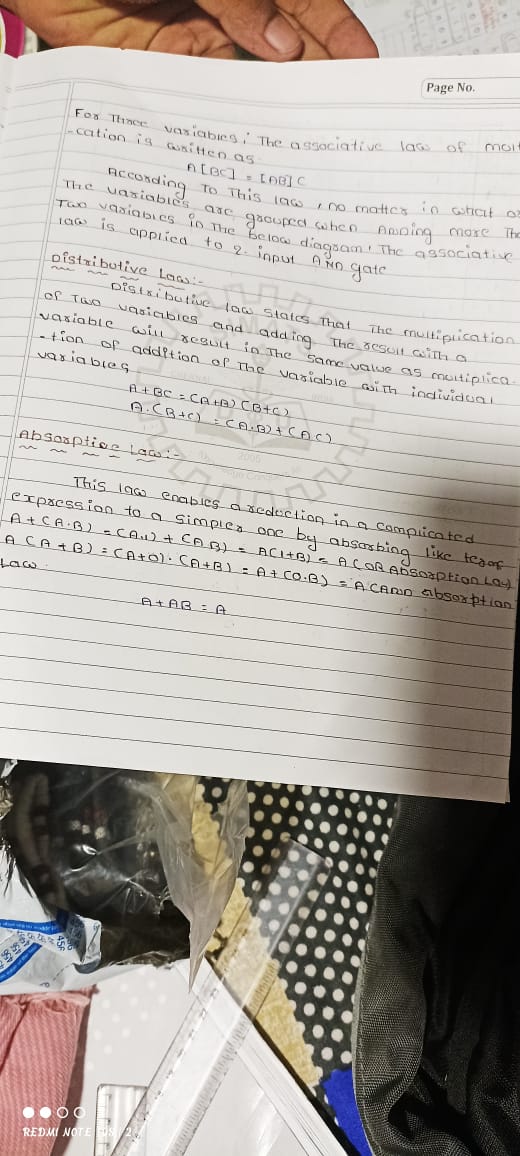 Page No.
For Three variables; The associative law of mult
-cation is written as
A[BC] = [AB]C
According To This law, no matter in what or
The variables are grouped when Anding more The
Two variables in The below diagram, The associative
law is applied to 2. input AND gate
Distributive Law:-
Distributive law states That The multiplication
of Two variables and adding The result with a
variable will result in The same value as multiplica-
-tion of addition of The variable with individual
variables
A+BC = (A+B) (B+C)
A.(B+C) = (A.B)+(AC)
Absorptive Law:-
This law enables a reduction in a complicated
expression to a simpler one by absorbing like
A+(A.B) = (A.1) + (AB) = A(1+B) = A (OR Absorption Law)
A(A+B) = (A+0).(A+B) = A+(0.B) = A absorption
Law.
A+AB = A
2005
REDMI NOTE